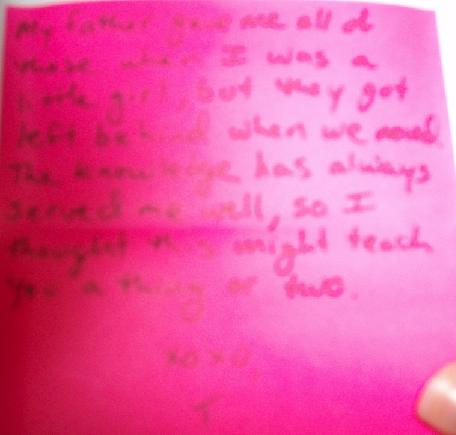 My father gave me all of
those when I was a
little girl, but they got
left behind when we moved.
The knowledge has always
served me well, so I
thought this might teach
you a thing or two.
xoxo,
T